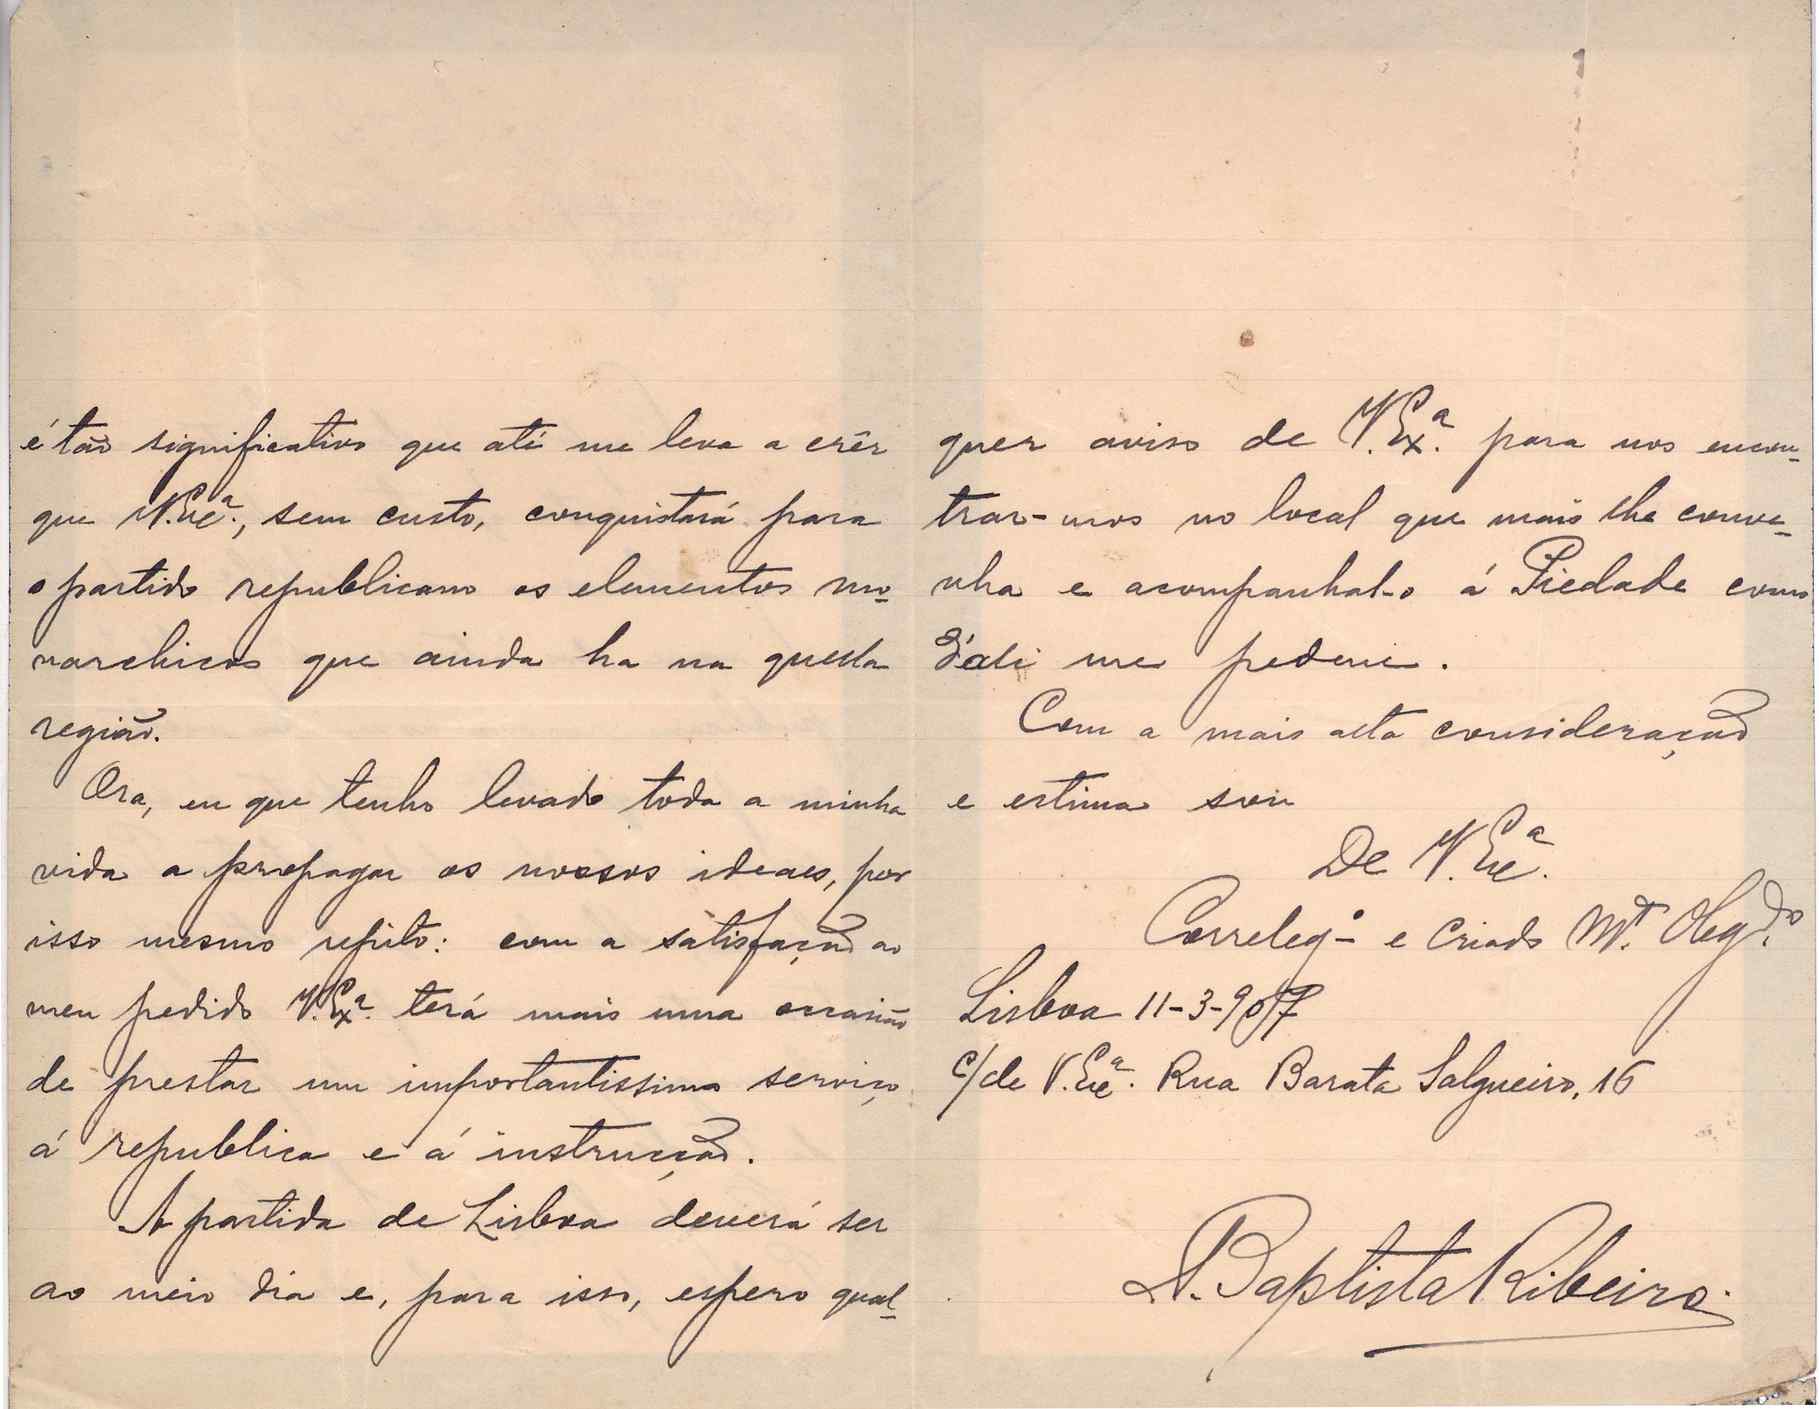 é tão significativo que até me leva a crêr
que V. Exc.ª, sem custo, conquistará para
o partido republicano os elementos mo-
narchicos que ainda ha na quella
região.
Ora, eu que tenho levado toda a minha
vida a propagar os nossos ideaes, por
isso mesmo repito: com a satisfação ao
meu pedido V. Ex.ª terá mais uma occasião
de prestar um importantissimo serviço
á republica e á instrucção.
A partida de Lisboa deverá ser
ao meio dia e, para isso, espero qual-
quer aviso de V. Ex.ª para nos encon-
trar-mos no local que mais lhe conve-
nha e acompanhal-o á Piedade como
d'ali me pedem.
Com a mais alta consideração
e estima sou
De V. Exc.ª
Correleg.º e criado Mt.º Obgd.º
Lisboa 11-3-907
c/ de V. Exc.ª Rua Barata Salgueiro, 16
A. Baptista Ribeiro